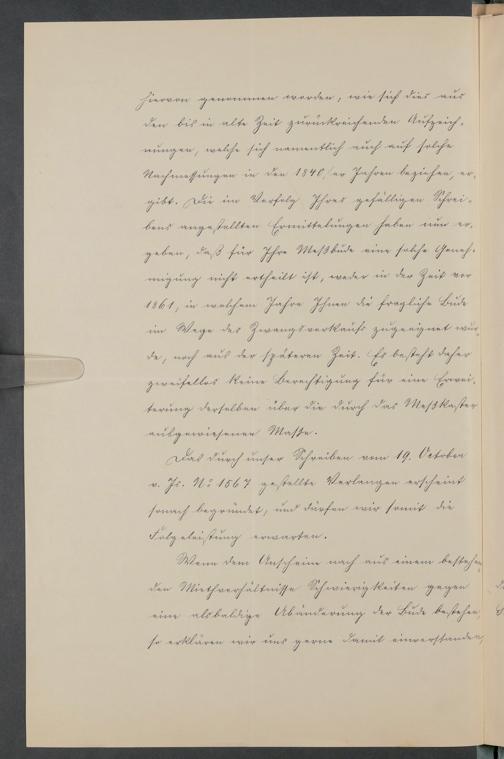 hiervon genommen worden, wie sich dies aus
den bis in alte Zeit zurückreichenden Aufzeich-
nungen, welche sich namentlich auch auf solche
Nachmessungen in den 1840/er Jahren beziehen, er-
gibt. Die im Verfolg Ihres gefälligen Schrei-
bens angestellten Ermittelungen haben nun er-
geben, daß für Ihre Meßbude eine solche Geneh-
migung nicht ertheilt ist, weder in der Zeit vor
1861, in welchem Jahre Ihnen die fragliche Bude
im Wege des Zwangsverkaufs zugeeignet wur-
de, noch aus der späteren Zeit. Es besteht daher
zweifellos keine Berechtigung für eine Erwei-
terung derselben über die durch das Meßkataster
ausgewiesenen Maße.
Das durch unser Schreiben vom 19. October
v. Js. No 1567 gestellte Verlangen erscheint
sonach begründet, und dürfen wir somit die
Folgeleistung erwarten.
Wenn dem Anscheine nach aus einem bestehen-
den Miethverhältnisse Schwierigkeiten gegen
eine alsbaldige Abänderung der Bude bestehen,
so erklären wir uns gerne damit einverstanden,